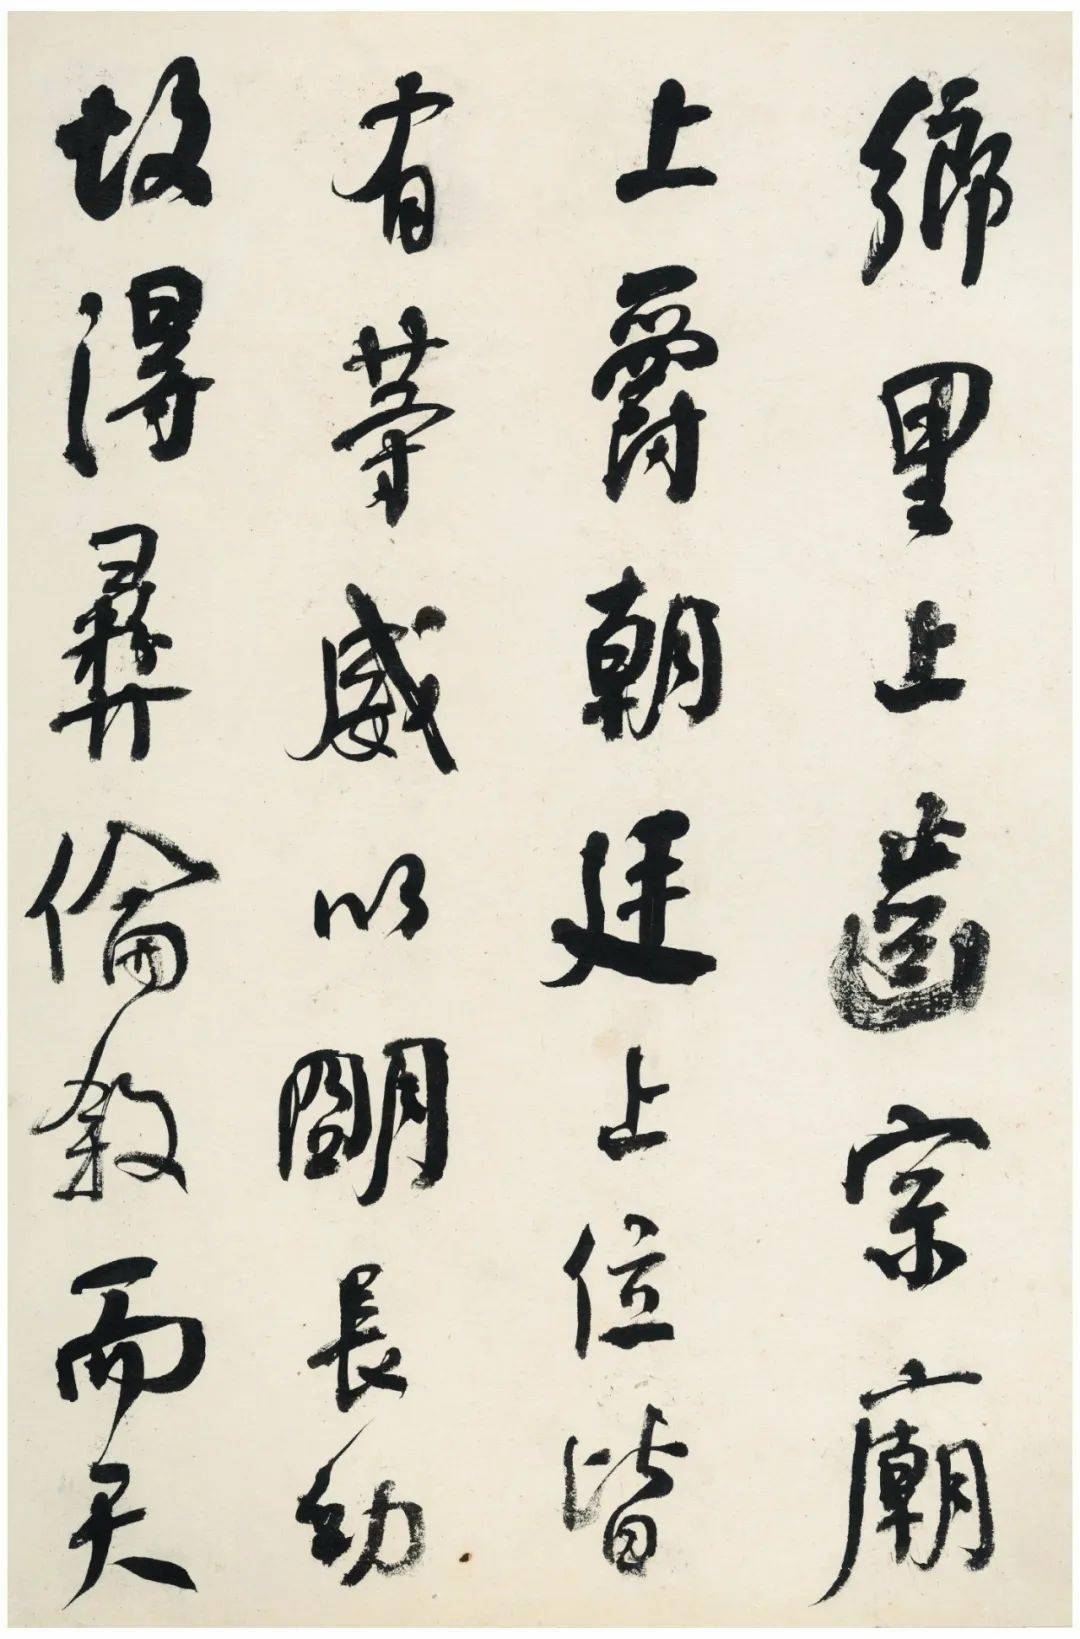 鄉里上齒宗廟
上爵朝廷上位皆
有等威以明長幼
故得彝倫敘而天